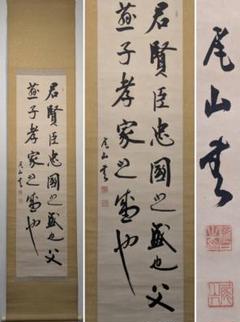 君賢臣忠國之盛也父
慈子孝家之盛也
尾山書
君賢臣忠國之盛也父
慈子孝家之盛也
尾山書
尾山書